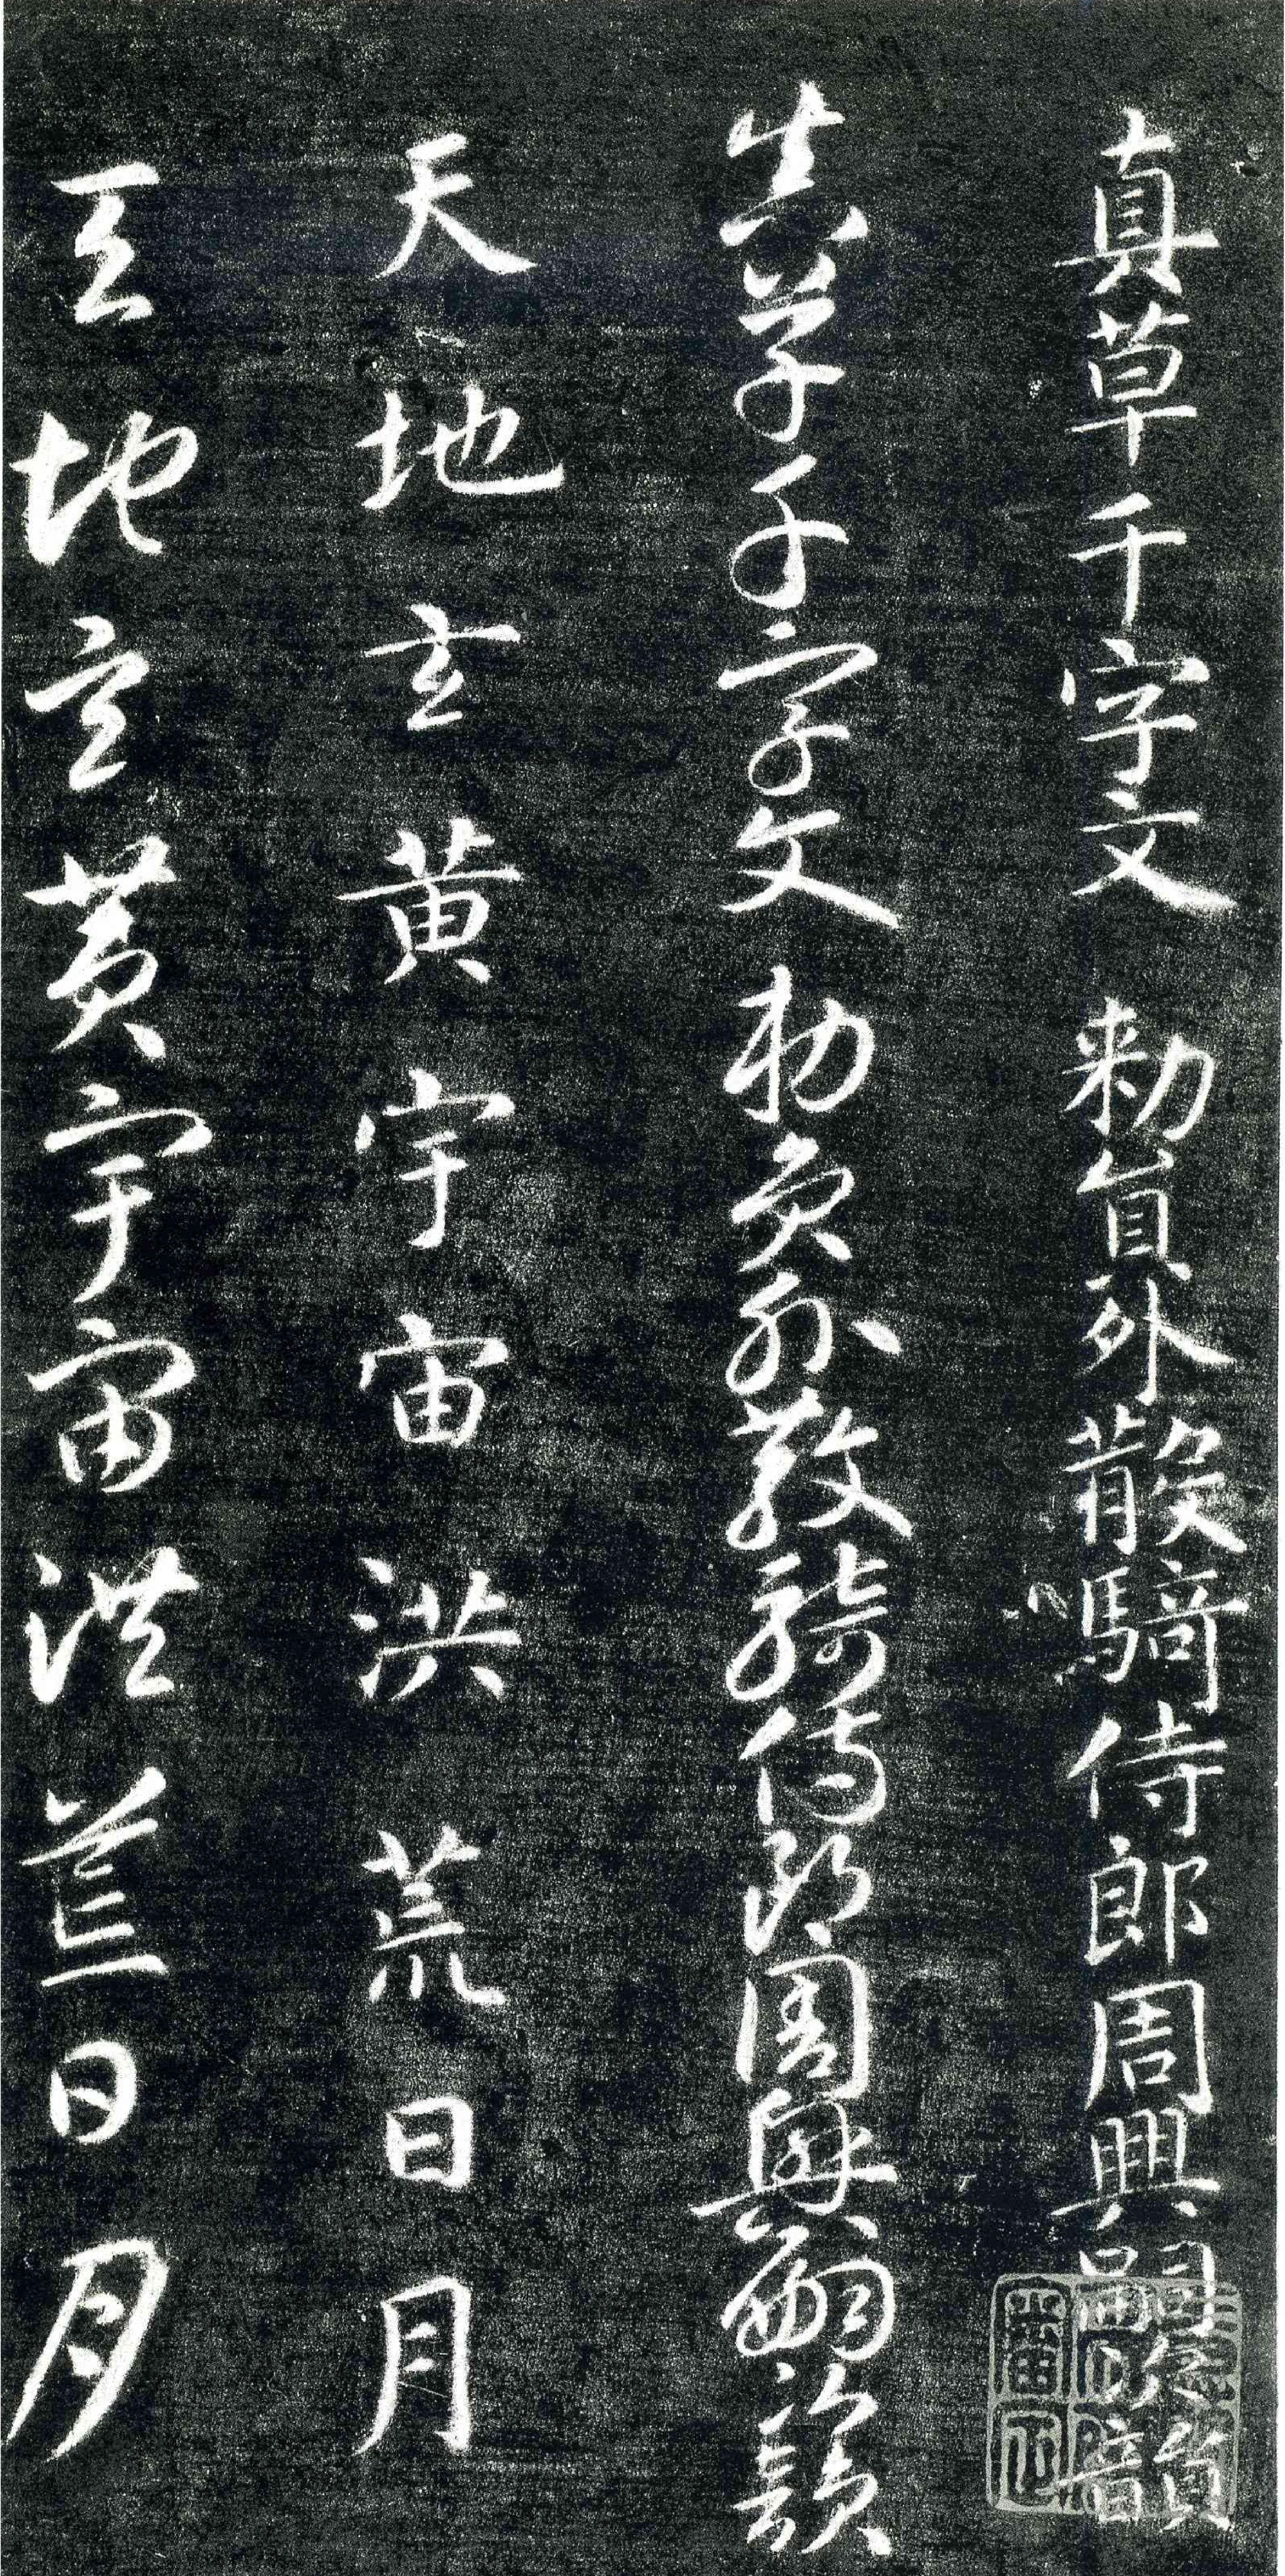 真草千字文 勑員外散騎侍郎周興嗣次韻
真草千字文 勑員外散騎侍郎周興嗣次韻
天地玄黃宇宙洪荒日月
天地玄黃宇宙洪荒日月